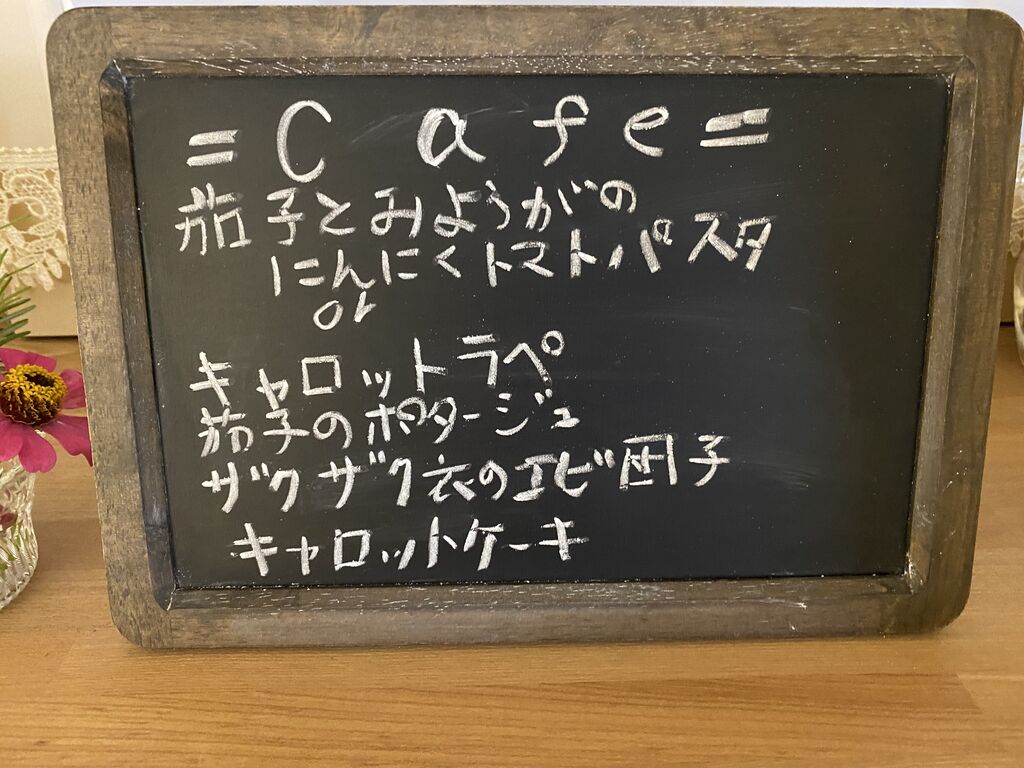 =Cafe=
茄子とみょうがの
にんにくトマトパスタ
or
キャロットラペ
茄子のポタージュ
ザクザク衣のエビ団子
キャロットケーキ